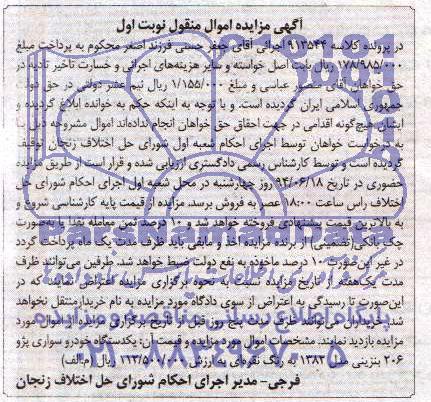 آگهی مزایده اموال منقول نوبت اول
در پرونده کلاسه ۹۱۳۵۴۴ اجرائی آقای جعفر حسنی فرزند اصغر محکوم به پرداخت مبلغ
۱۷۸/۹۸۵/۰۰۰ ریال بابت اصل خواسته و سایر هزینه‌های اجرائی و خسارت تاخیر تادیه در
حق خواهان آقای منصور عباسی و مبلغ ۱/۱۵۵/۰۰۰ ریال نیم عشر دولتی در حق دولت
جمهوری اسلامی ایران گردیده است. و با توجه به اینکه حکم به خوانده ابلاغ گردیده و
ایشان هیچگونه اقدامی در جهت احقاق حق خواهان انجام نداده‌اند اموال مشروحه ذیل بنا
به درخواست خواهان توسط اجرای احکام شعبه اول شورای حل اختلاف زنجان توقیف
گردیده است و توسط کارشناس رسمی دادگستری ارزیابی شده و قرار است از طریق مزایده
حضوری در تاریخ ۹۴/۰۶/۱۸ روز چهارشنبه در محل شعبه اول اجرای احکام شورای حل
اختلاف راس ساعت ۱۸:۰۰ عصر به فروش برسد. مزایده از قیمت پایه کارشناسی شروع و
به بالاترین قیمت پیشنهادی فروخته خواهد شد و ۱۰ درصد ثمن معامله نقدا یا به‌صورت
چک بانکی (تضمینی) از برنده مزایده اخذ و مابقی باید ظرف مدت یک ماه پرداخت گردد
در غیر این‌صورت ۱۰ درصد ماخوذه به نفع دولت ضبط خواهد شد. طرفین می‌توانند ظرف
مدت یک‌هفته از تاریخ مزایده نسبت به نحوه برگزاری مزایده اعتراض نمایند که در
این‌صورت تا رسیدگی به اعتراض از سوی دادگاه مورد مزایده به نام خریدار منتقل نخواهد
شد. خریداران می‌توانند ظرف مدت پنج روز قبل از تاریخ برگزاری مزایده از اموال مورد
مزایده بازدید نمایند. مشخصات اموال مورد مزایده و قیمت آن: یکدستگاه خودرو سواری پژو
۲۰۶ بنزینی مدل ۱۳۸۳ به رنگ نقره‌ای به ارزش ۱۲۳/۵۰۰/۰۰۰ ریال (م.الف)
فرجی- مدیر اجرای احکام شورای حل اختلاف زنجان
ParsNamadData
پایگاه اطلاع رسانی مناقصه و مزایده
۰۲۱-۸۸۳۴۹۶۷۰-۵